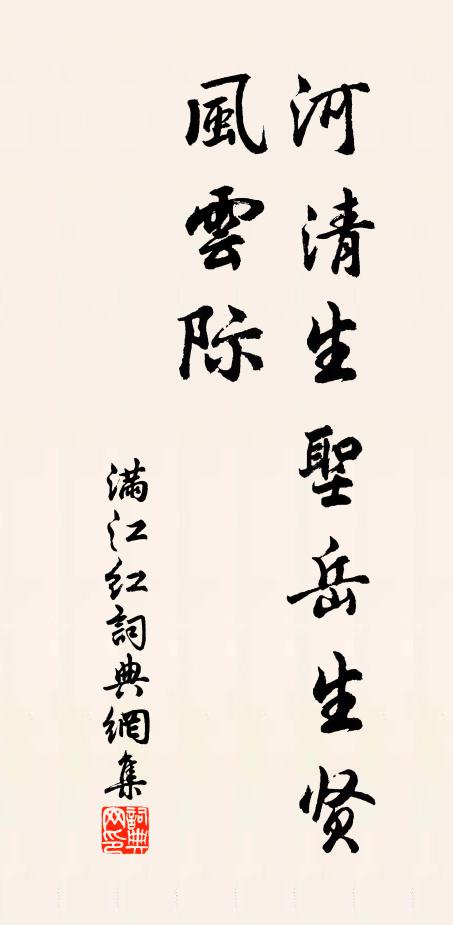 河清生聖岳生贤
風雲际
满江红詞典網集
詞典网印